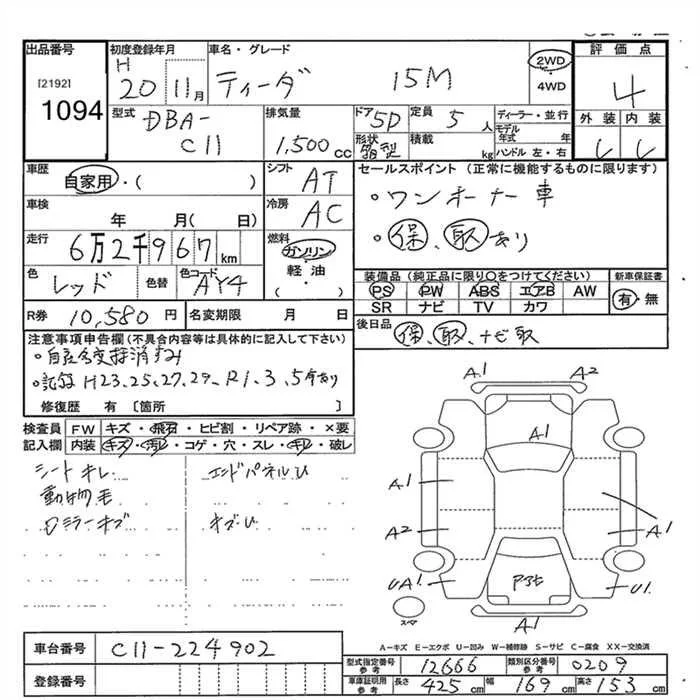 出品番号
[2192]
1094
初度登録年月
H 20 11月
車名・グレード
ティーダ 15M
2WD
・
4WD
評価点
4
型式
DBA-
C11
排気量
1,500cc
ドア
5D
形状
箱型
定員
5人
積載
kg
ディーラー・並行
モデル年式 年
ハンドル 左・右
外装 内装
車歴
自家用・( )
シフト
AT
車検
年 月(日)
冷房
AC
走行
6万2千967km
燃料
ガソリン
・
軽油
・( )
色
レッド
色替
色コード
AY4
R券
10,580円
名変期限 月 日
セールスポイント(正常に機能するものに限ります)
・ワンオーナー車
・保、取あり
装備品(純正品に限り○をつけてください)
PS PW ABS エアB AW
SR ナビ TV カワ
新車保証書
有・無
後日品
保、取、ナビ取
注意事項申告欄(不具合内容等は具体的に記入して下さい)
・記録 H23.25.27.29.R1.3.5有あり
修復歴 有 [箇所 ]
検査員 FW キズ・飛石・ヒビ割・リペア跡・×要
記入欄 内装 キズ・汚レ・コゲ・穴・スレ・キレ・破レ
シートキレ
動物毛
Dミラーキズ
エンドパネルU
キズU
A1 A2
A1
A1
A2
A1
UA1
U1
A1
スペア
A−キズ E−エクボ U−凹み W−補修跡 S−サビ C−腐食 XX−交換済
車台番号 C11-224902
登録番号
型式指定番号 参考 12666
類別区分番号 参考 0209
車庫証明用 参考 長さ 425cm 幅 169cm 高さ 153cm